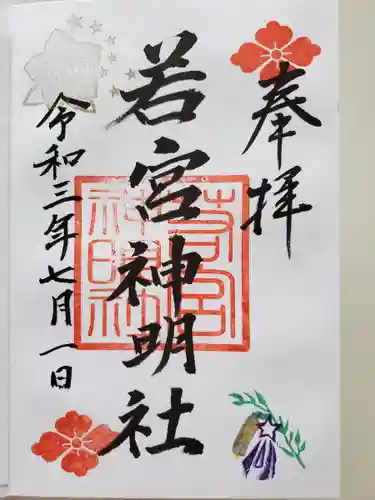 奉拝
若宮神明社
若宮神明社
令和三年七月一日